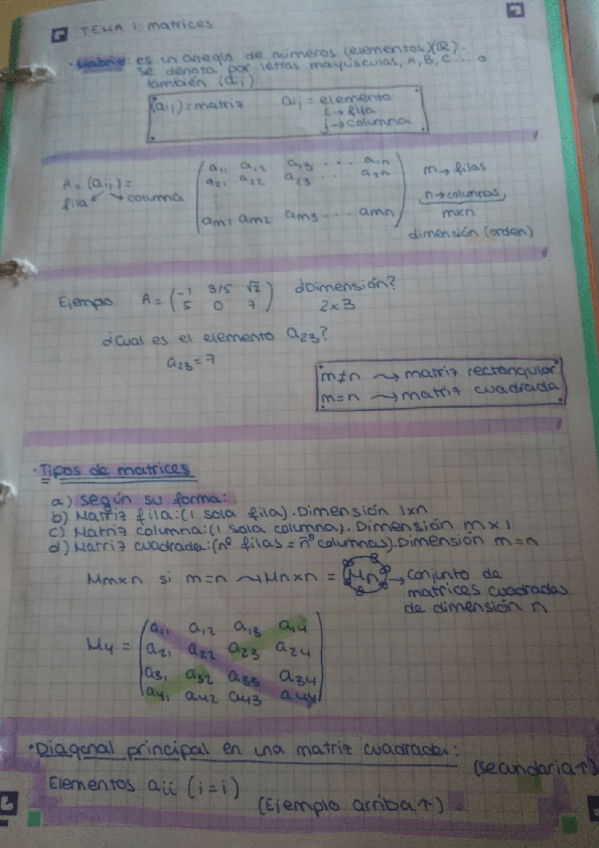 TEMA 1: matrices
· Matriz: es un arreglo de números (elementos)(ℝ).
Se denota por letras mayúsculas, A, B, C... o
también (aij)
(aij) = matriz aij = elemento
i → fila
j → columna
A = (aij) =
fila columna
a11 a12 a13 ... a1n
a21 a22 a23 ... a2n
⋮
am1 am2 am3 ... amn
m → filas
n → columnas
m×n
dimensión (orden)
Ejemplo A = (-1 3/5 √2 ¿Dimensión?
5 0 7) 2×3
¿Cual es el elemento a23?
a23 = 7
m≠n → matriz rectangular
m=n → matriz cuadrada
· Tipos de matrices
a) según su forma:
b) Matriz fila: (1 sola fila). Dimensión 1×n
c) Matriz columna: (1 sola columna). Dimensión m×1
d) Matriz cuadrada: (nº filas = nº columnas). Dimensión m=n
Mm×n si m=n → Mn×n = Mn → Conjunto de
matrices cuadradas
de dimensión n
M4 =
a11 a12 a13 a14
a21 a22 a23 a24
a31 a32 a33 a34
a41 a42 a43 a44
· Diagonal principal en una matriz cuadrada:
(secundaria↑)
Elementos aii (i=i)
(Ejemplo arriba↑)